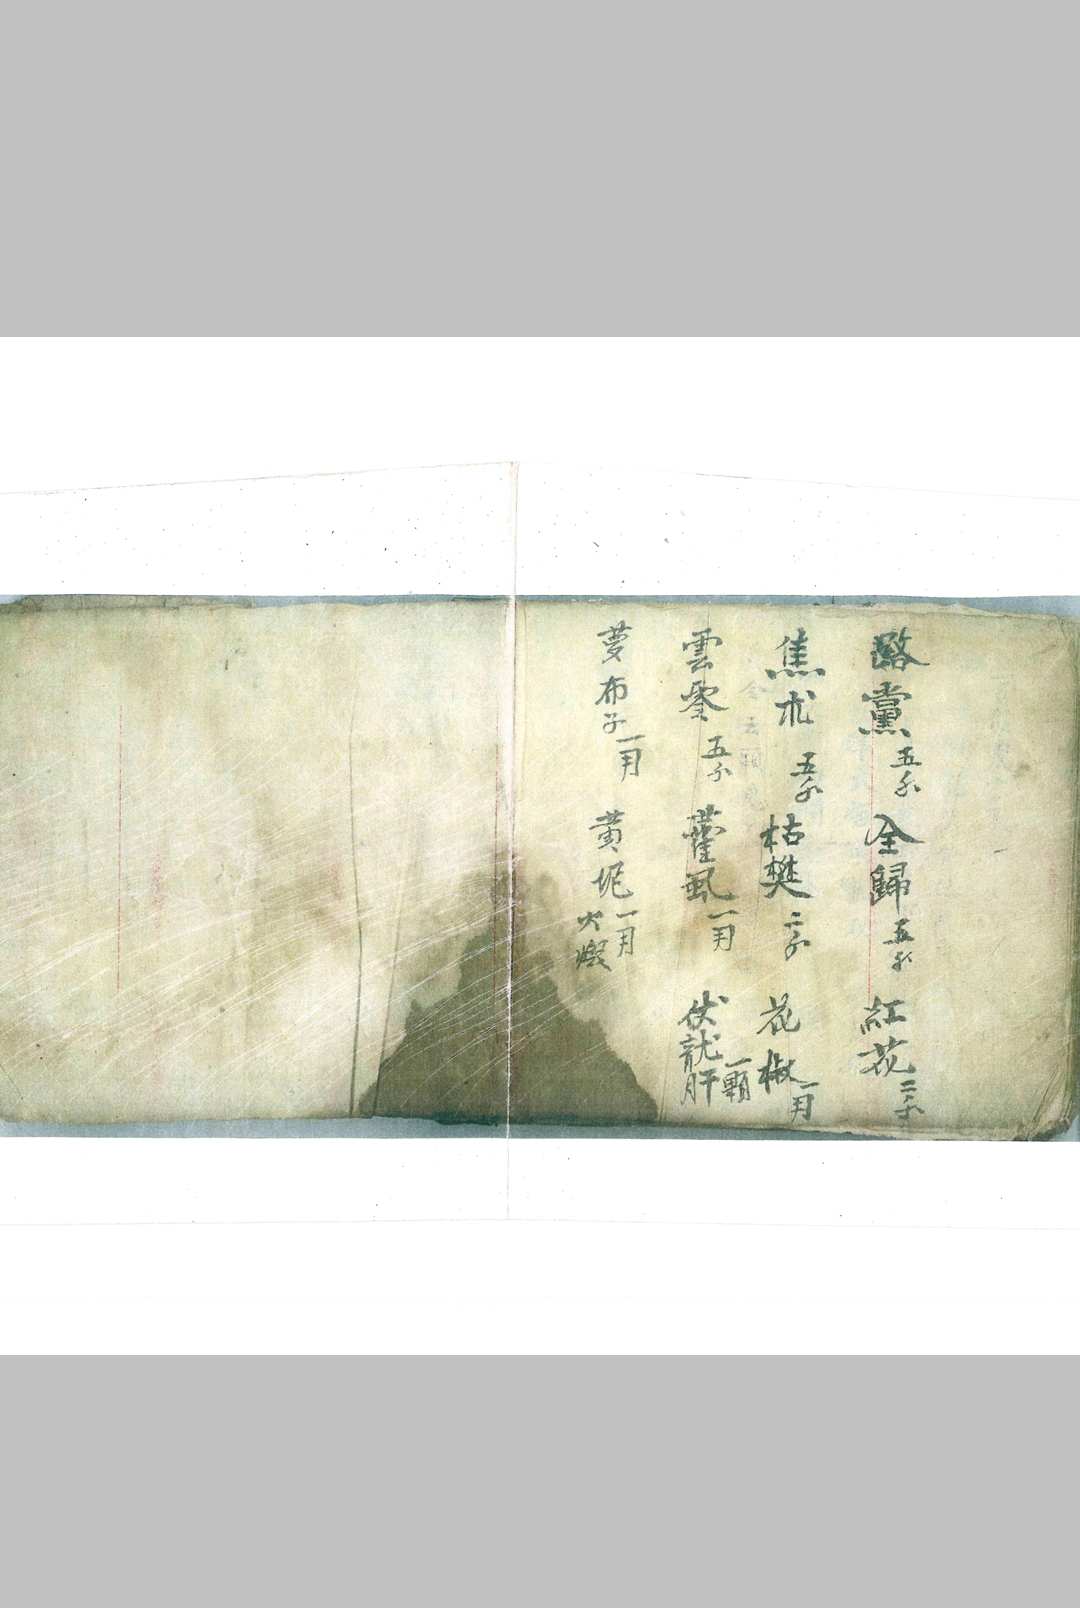 潞黨五分 全歸五分 紅花二分
焦朮五分 枯樊二分 花椒一月
雲零五分 藿虱一月 伏龍肝一顆
夢布子一月 黄坭一月火煅